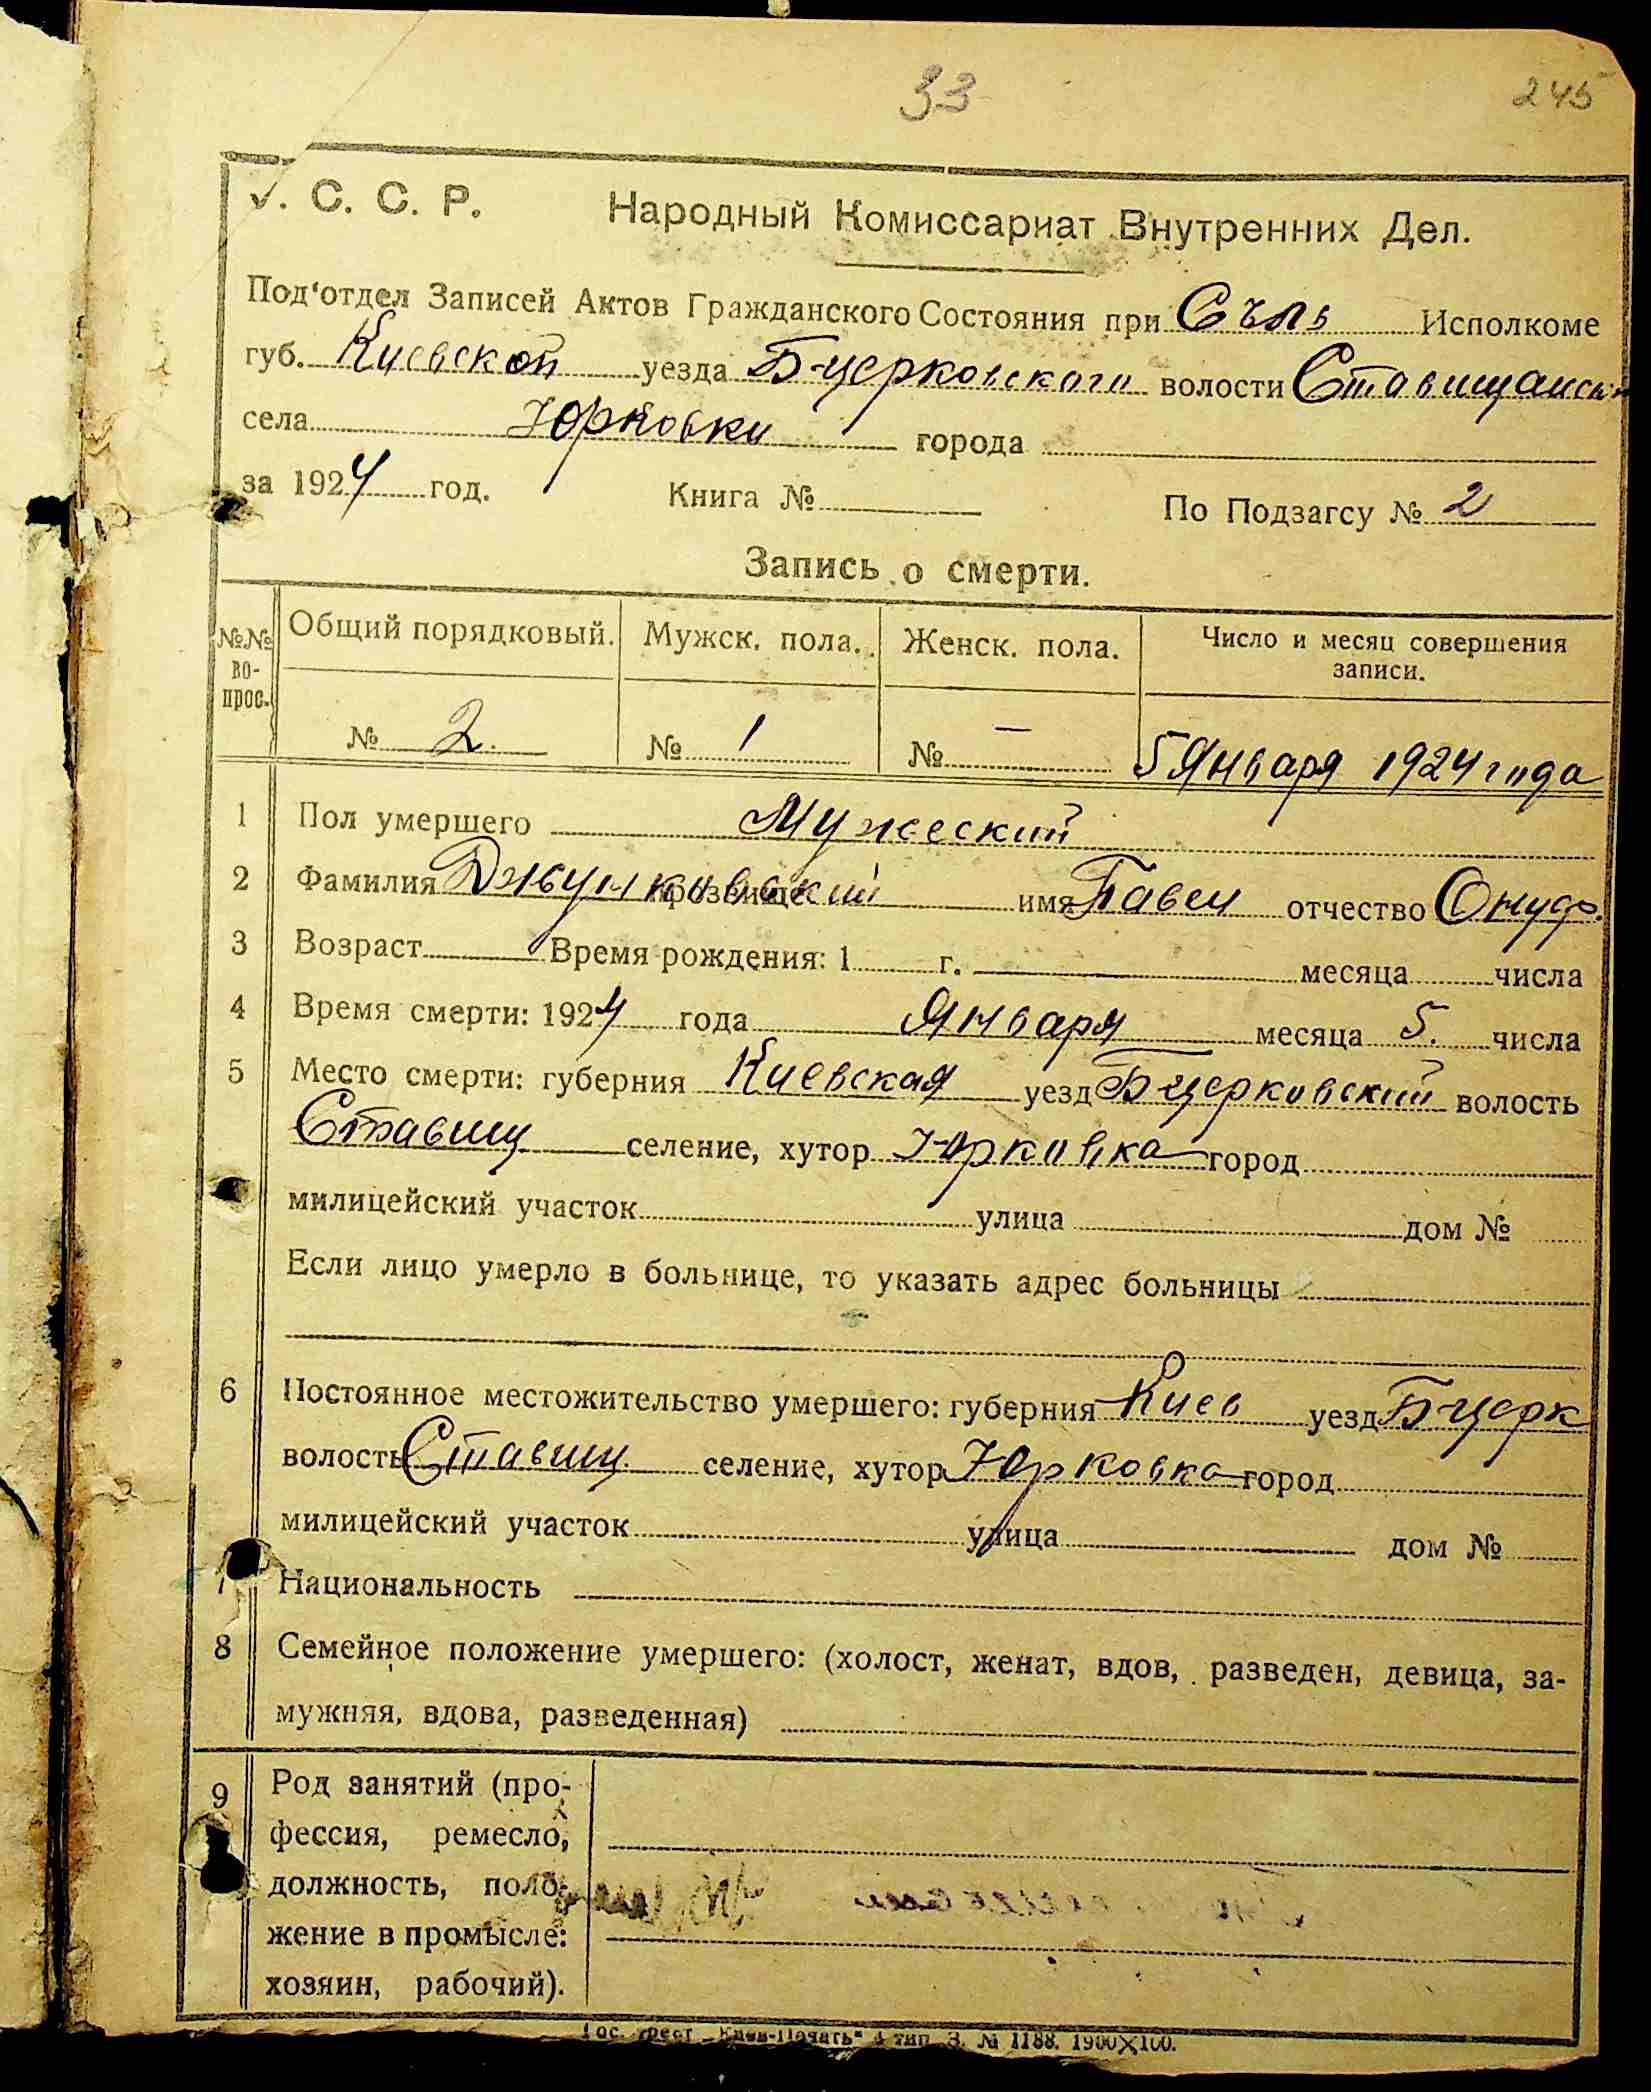 33
245
У. С. С. Р. Народный Комиссариат Внутренних Дел.
Под'отдел Записей Актов Гражданского Состояния при Исполкоме
губ. Киевской уезда Б-церковского волости Ставищанск
села Юрковки города
за 1924 год. Книга № По Подзагсу № 2
Запись о смерти.
№№ вопрос. Общий порядковый. Мужск. пола. Женск. пола. Число и месяц совершения
записи.
№ 2. № 1 № — 5 Января 1924 года
1 Пол умершего Мужеский
2 Фамилия прозвище Джулковский имя Павел отчество Онуф.
3 Возраст Время рождения: 1 г. месяца числа
4 Время смерти: 1924 года Января месяца 5. числа
5 Место смерти: губерния Киевская уезд Б церковский волость
Ставищ селение, хутор Юрковка город
милицейский участок улица дом №
Если лицо умерло в больнице, то указать адрес больницы
6 Постоянное местожительство умершего: губерния Киев уезд Б церк
волость Ставищ. селение, хутор Юрковка город
милицейский участок улица дом №
7 Национальность
8 Семейное положение умершего: (холост, женат, вдов, разведен, девица, за-
мужняя, вдова, разведенная)
9 Род занятий (про-
фессия, ремесло,
должность, поло-
жение в промысле:
хозяин, рабочий).
Гос. трест „Киев-Печать" 4 тип. З. № 1188. 1900×100.